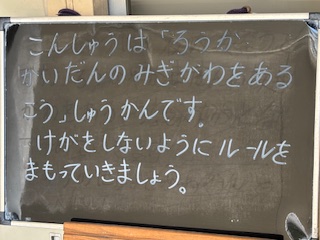 こんしゅうは「ろうか
かいだんのみぎがわをある
こう」しゅうかんです。
けがをしないようにルールを
まもっていきましょう。